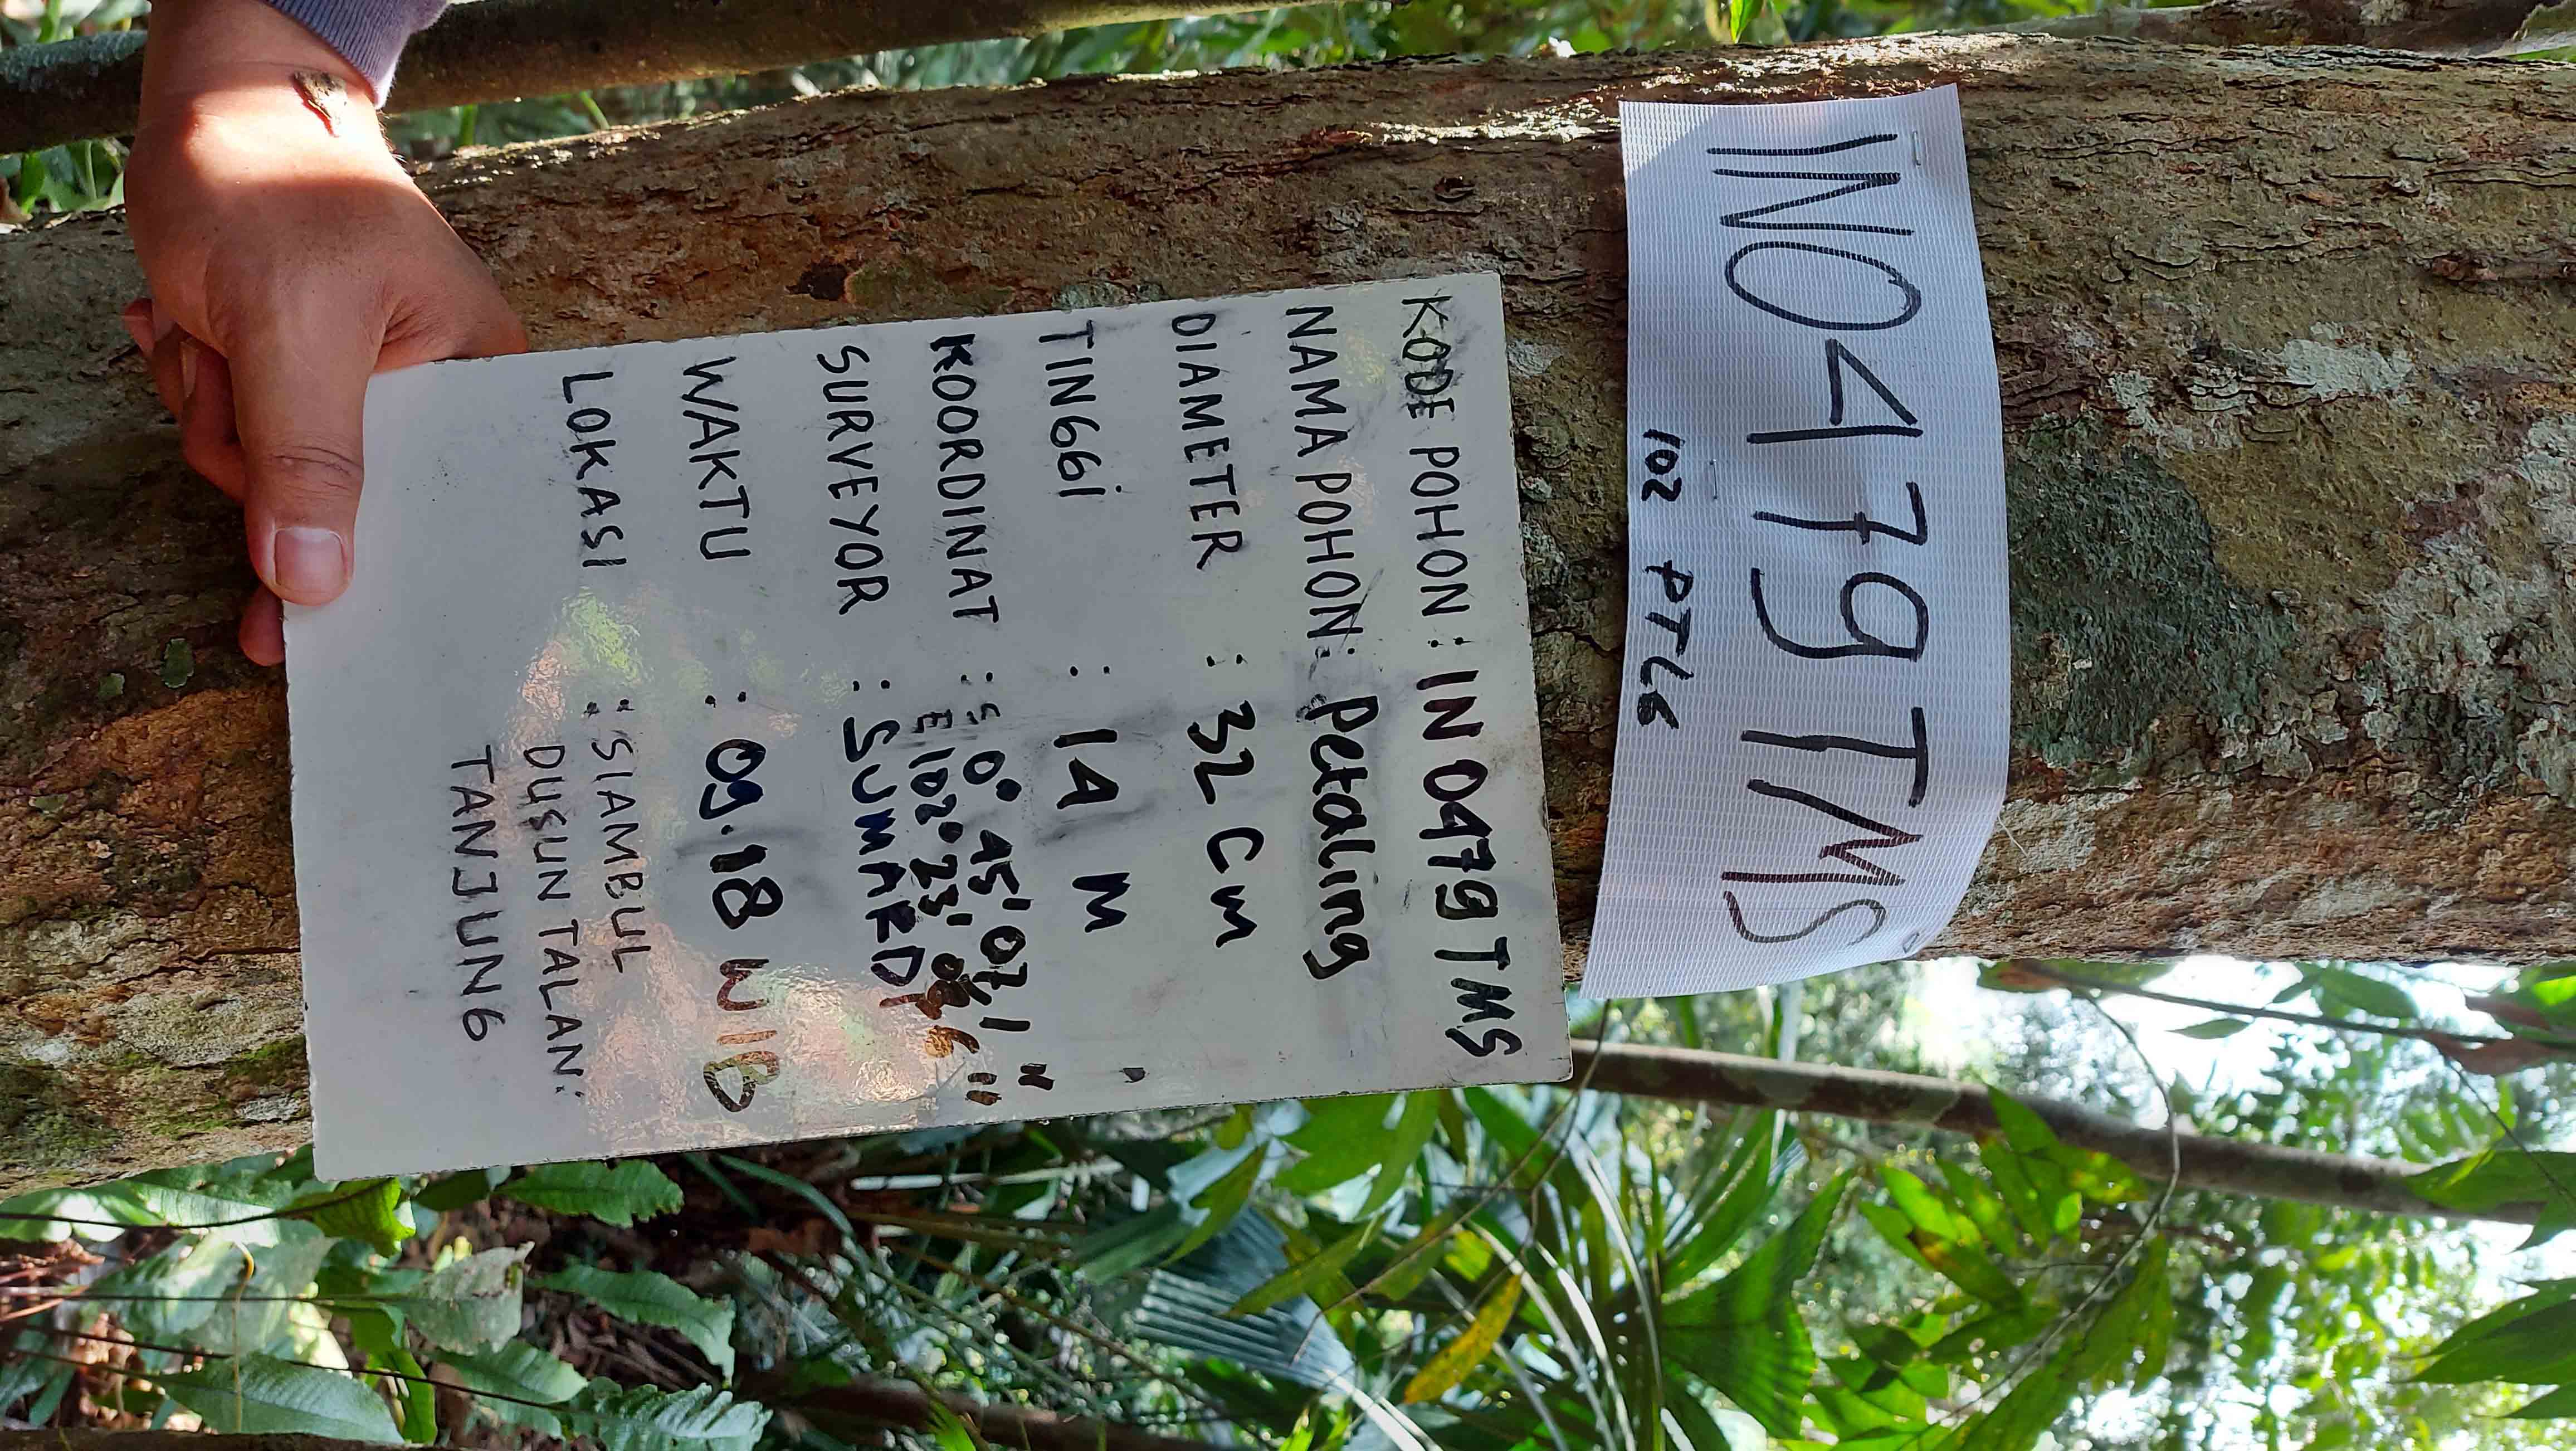 IN0479TMS
102 PTLG
KODE POHON : IN 0479 TMS
NAMA POHON : Petaling
DIAMETER : 32 Cm
TINGGi : 14 M
KOORDINAT : S 0° 45' 07,1 "
E 102° 23' "
SURVEYOR : SUMARDI
WAKTU : 09.18 WIB
LOKASI : SIAMBUL
DUSUN TALAN:
TANJUNG